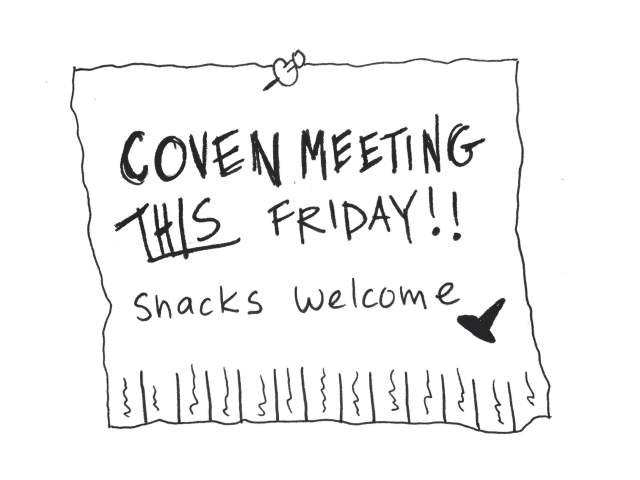 COVEN MEETING
THIS FRIDAY!!
snacks welcome